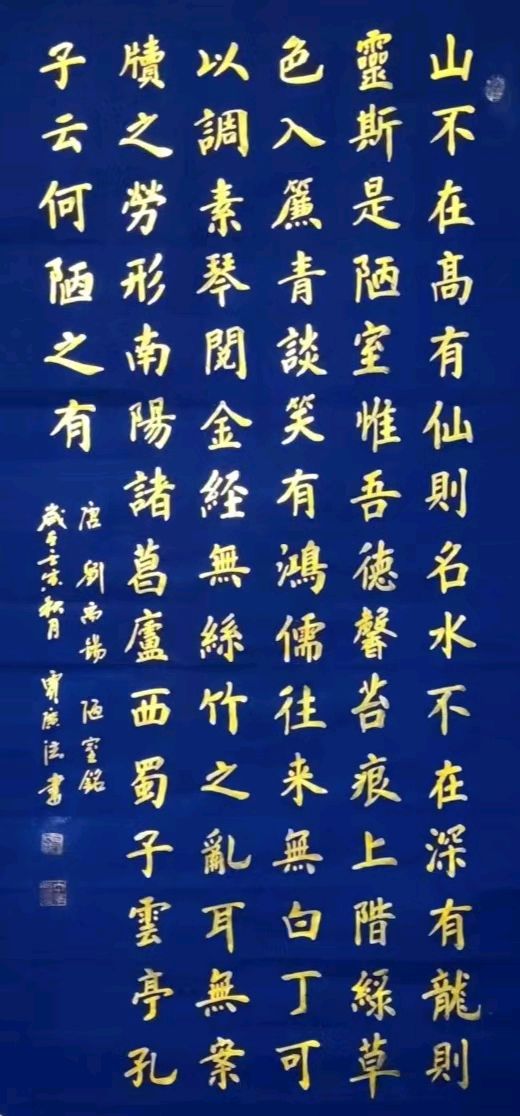 山不在髙有仙則名水不在深有龍則
靈斯是陋室惟吾徳馨苔痕上階綠草
色入簾青談笑有鴻儒往来無白丁可
以調素琴閱金経無絲竹之亂耳無案
牘之勞形南陽諸葛廬西蜀子雲亭孔
子云何陋之有
唐劉禹錫 陋室銘
歲在壬寅秋月 書